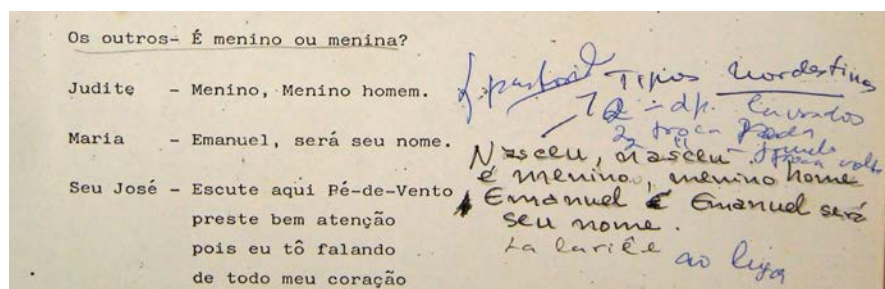 Os outros- É menino ou menina?
Judite - Menino, Menino homem.
Maria - Emanuel, será seu nome.
Seu José - Escute aqui Pé-de-Vento
preste bem atenção
pois eu tô falando
de todo meu coração
pastoril Tipos nordestinos
2 troca
Nasceu, nasceu.
é menino, menino home
Emanuel é Emanuel será
seu nome.
La lariêe
ao liga